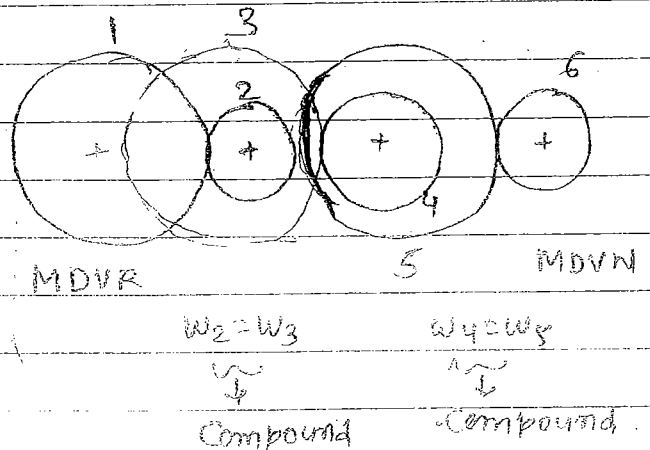 1 3
2
6
4
5
MDVR MDVN
W2=W3 W4=W5
Compound Compound.